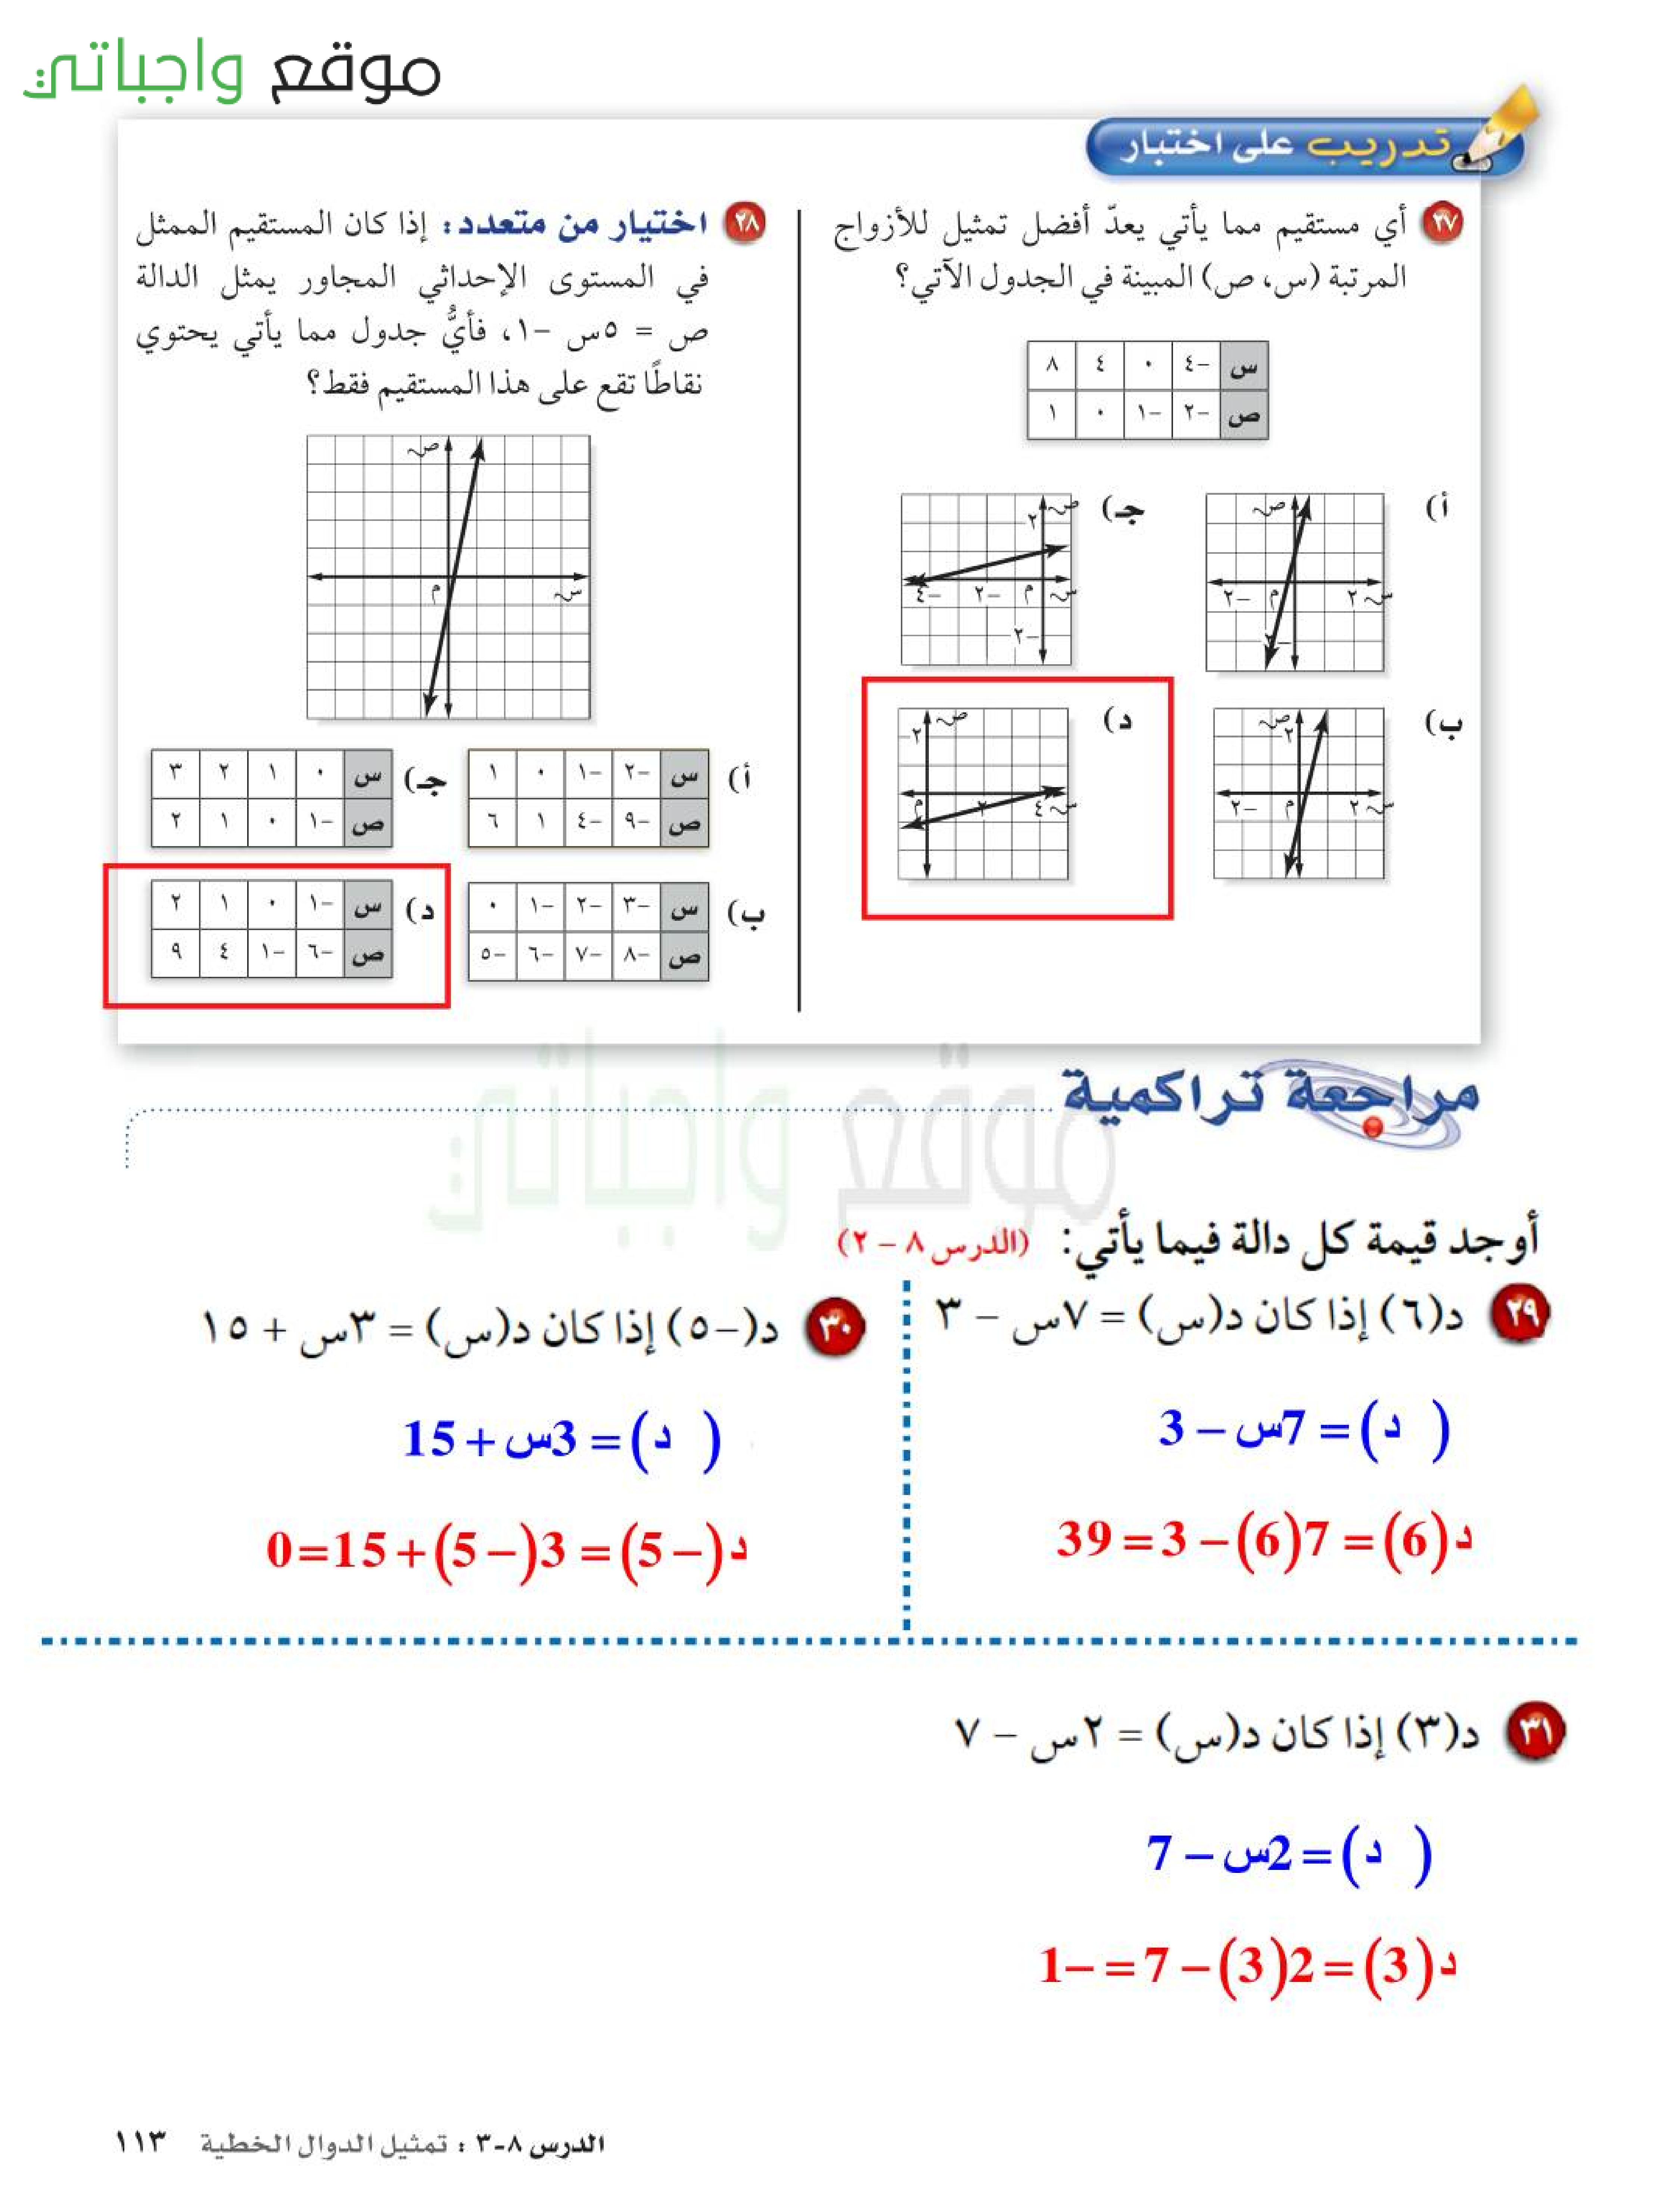 موقع واجباتي
تدريب على اختبار
٢٧ أي مستقيم مما يأتي يعدّ أفضل تمثيل للأزواج
المرتبة (س، ص) المبينة في الجدول الآتي؟
س -٤ ٠ ٤ ٨
ص -٢ -١ ٠ ١
أ) ص ٢ س -٢ م -٢
جـ) ص ٢ س م -٢ -٤ -٢
ب) ص ٢ ٢ س م -٢
د) ص ٢ م ٢ ٤ س
٢٨ اختيار من متعدد: إذا كان المستقيم الممثل
في المستوى الإحداثي المجاور يمثل الدالة
ص = ٥س -١، فأيُّ جدول مما يأتي يحتوي
نقاطًا تقع على هذا المستقيم فقط؟
ص
م س
أ) س -٢ -١ ٠ ١
ص -٩ -٤ ١ ٦
جـ) س ٠ ١ ٢ ٣
ص -١ ٠ ١ ٢
ب) س -٣ -٢ -١ ٠
ص -٨ -٧ -٦ -٥
د) س -١ ٠ ١ ٢
ص -٦ -١ ٤ ٩
مراجعة تراكمية
موقع واجباتي
أوجد قيمة كل دالة فيما يأتي: (الدرس ٨ – ٢)
٢٩ د(٦) إذا كان د(س) = ٧س – ٣
( د) = 7س – 3
د(6) = 7(6) – 3 = 39
٣٠ د(-٥) إذا كان د(س) = ٣س + ١٥
( د) = 3س + 15
د(– 5) = 3(– 5) + 15 = 0
٣١ د(٣) إذا كان د(س) = ٢س – ٧
( د) = 2س – 7
د(3) = 2(3) – 7 = –1
الدرس ٨-٣ : تمثيل الدوال الخطية ١١٣